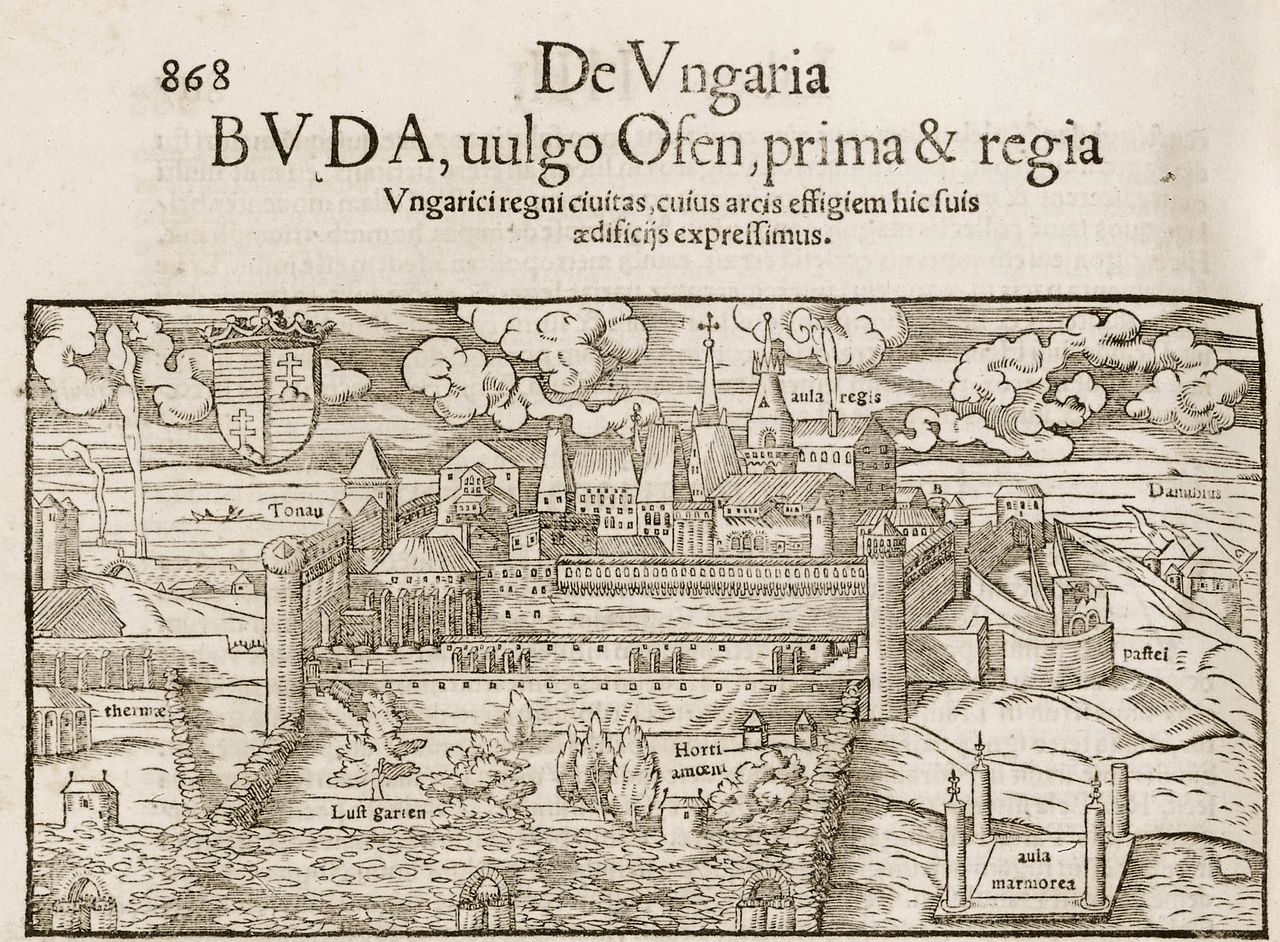 868
De Vngaria
BVDA, uulgo Ofen, prima & regia
Vngarici regni ciuitas, cuius arcis effigiem hic ſuis
ædificijs expreſſimus.
A
aula regis
Tonau
B
Danubius
paſtei
thermæ
Horti
amœni
Luſt garten
aula
marmorea